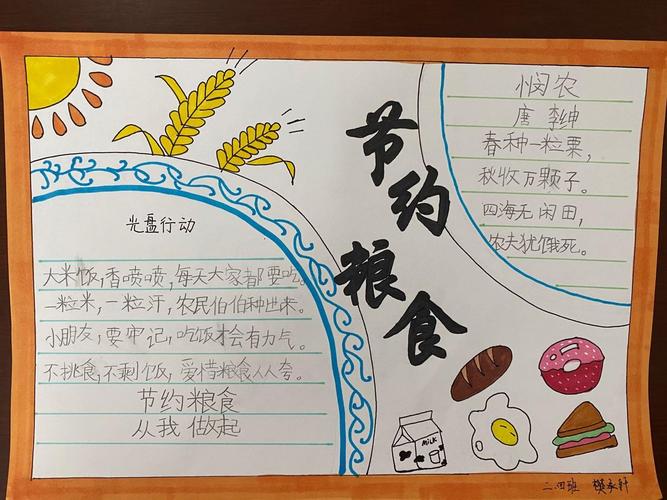 节约粮食
光盘行动
大米饭,香喷喷,每天大家都要吃。
一粒米,一粒汗,农民伯伯种出来。
小朋友,要牢记,吃饭才会有力气。
不挑食,不剩饭,爱惜粮食人人夸。
节约粮食
从我做起
悯农
唐 李绅
春种一粒粟,
秋收万颗子。
四海无闲田,
农夫犹饿死。
MILK
二.四班